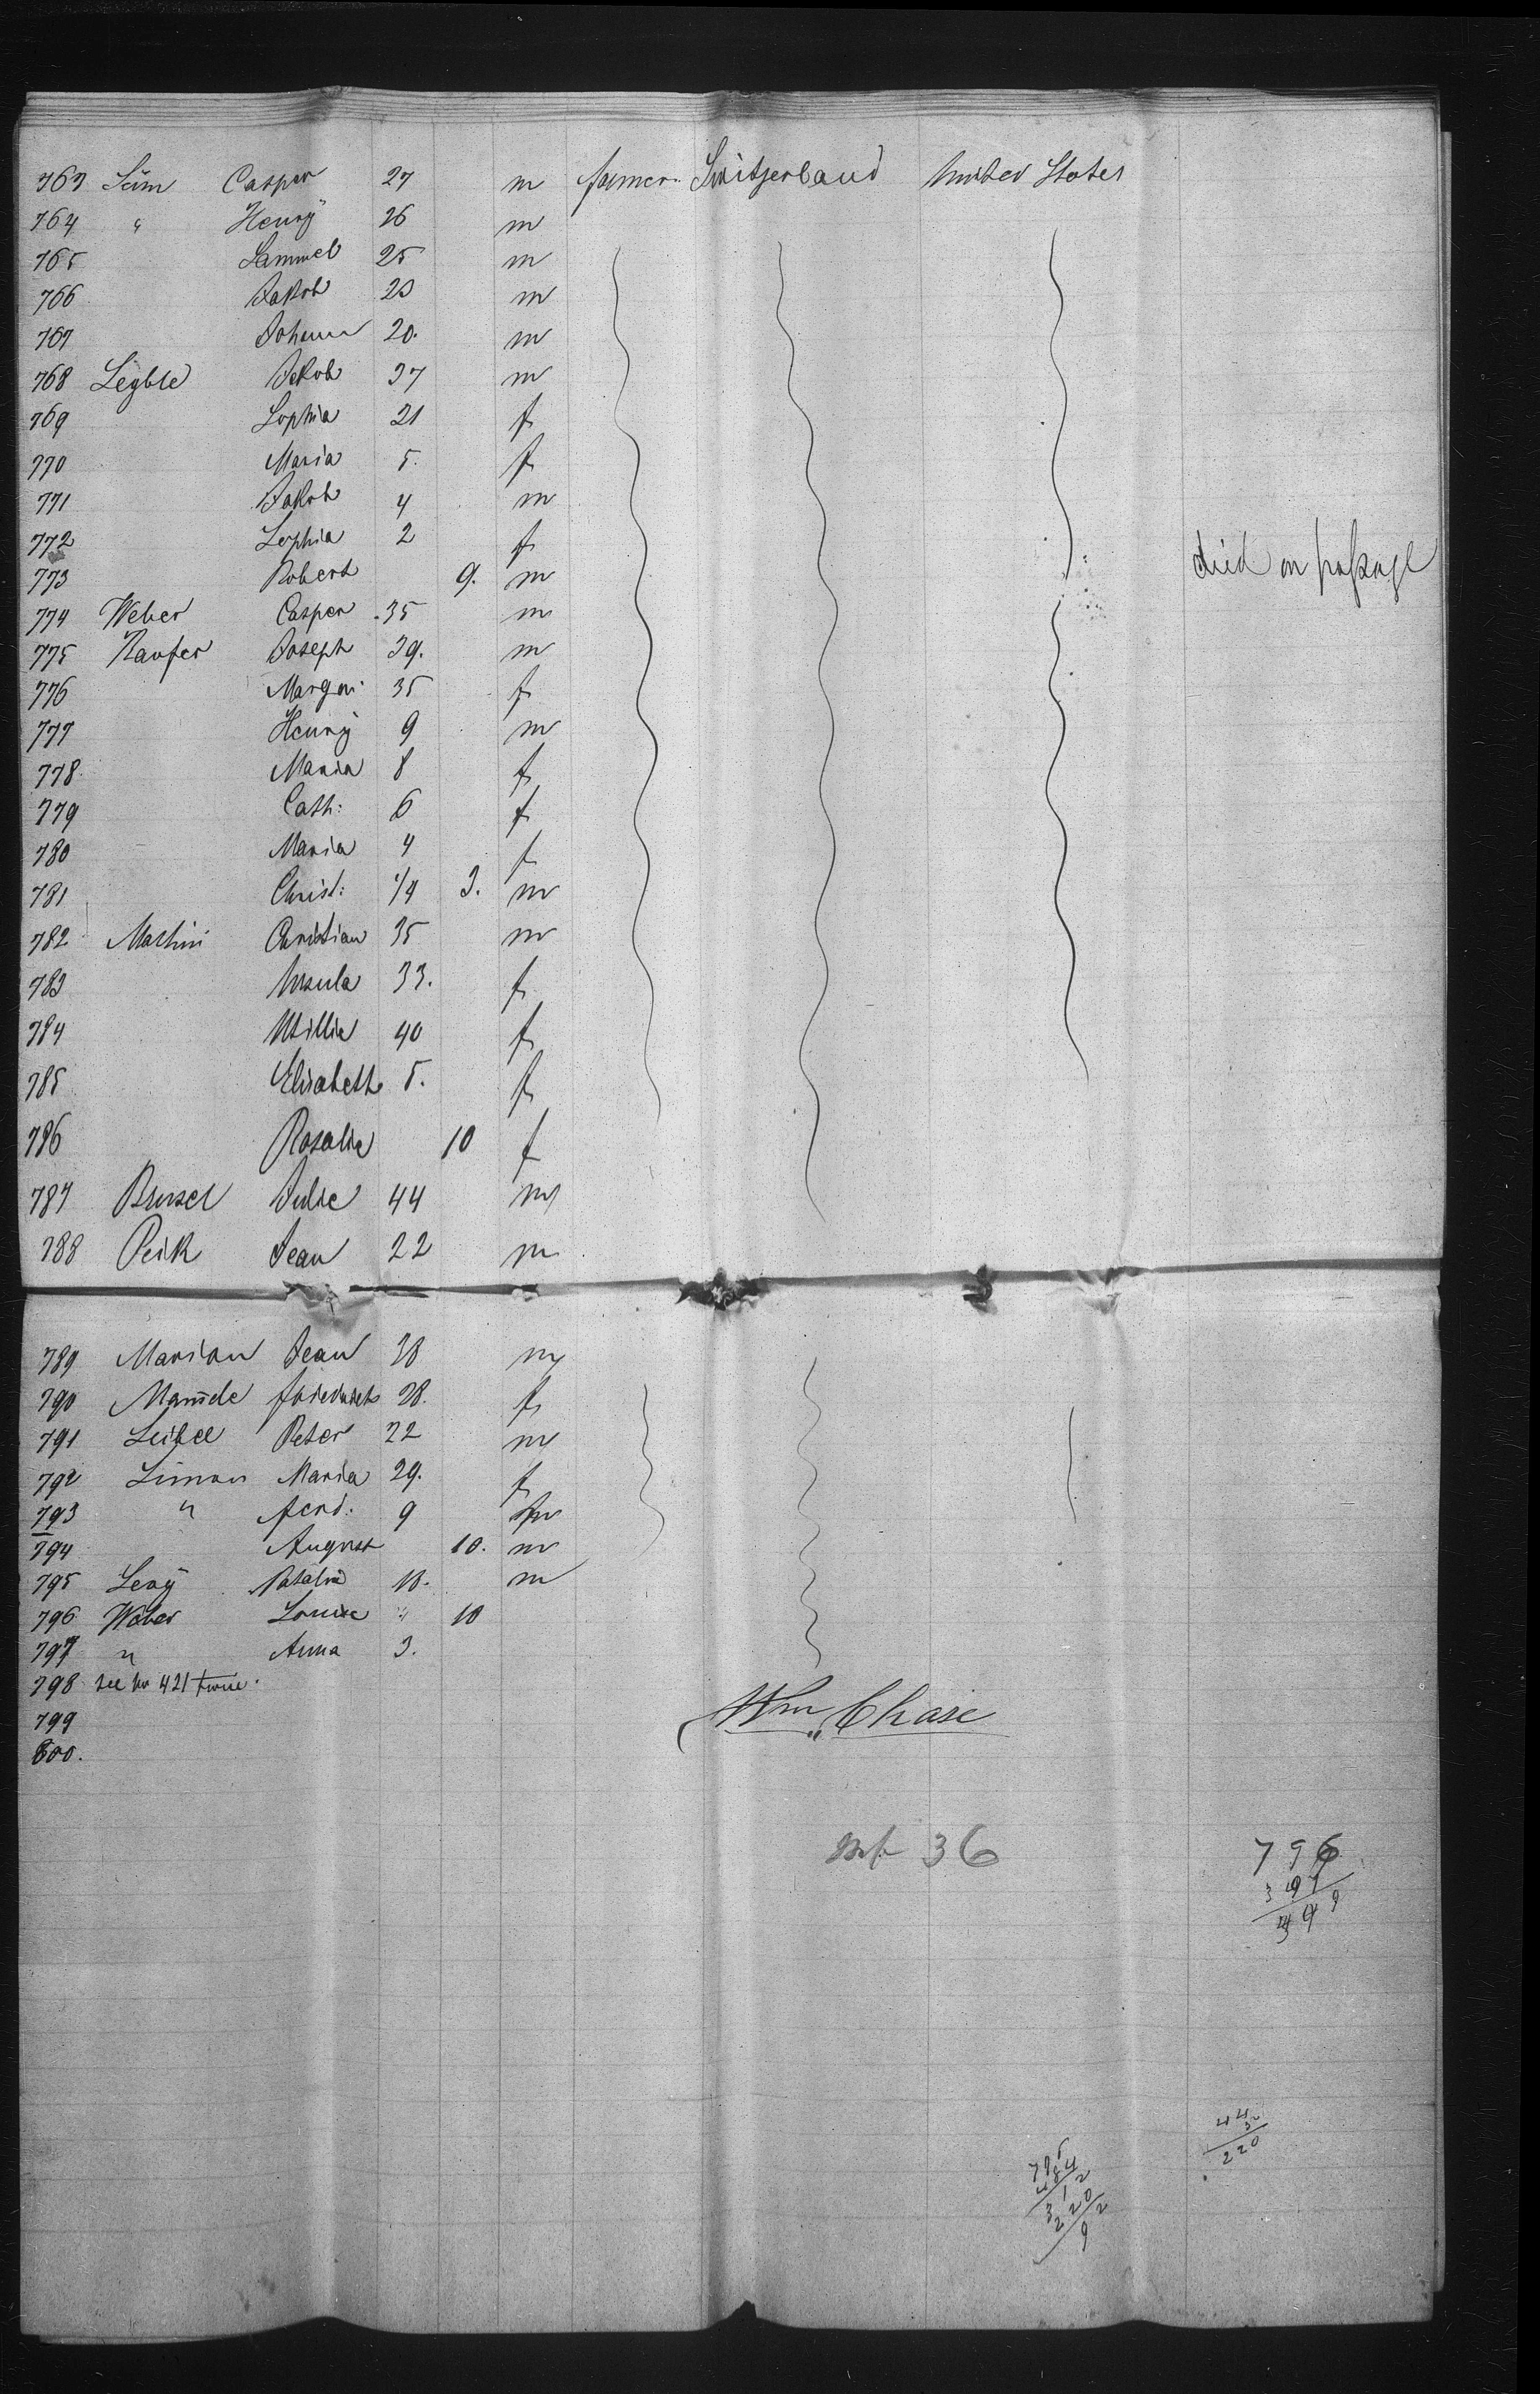 763 Süm Casper 27 m farmer Switzerland United States
764 " Henry 26 m
765 Sammel 25 m
766 Jakob 23 m
767 Johann 20. m
768 Legble Jakob 37 m
769 Sophia 21 f
770 Maria 5. f
771 Jakob 4 m
772 Sophia 2 f
773 Robert 9. m died on passage
774 Weber Casper 35 m
775 Kaufer Joseph 39. m
776 Margar: 35 f
777 Henry 9 m
778 Maria 8 f
779 Cath: 6 f
780 Maria 4 f
781 Christ: 1/4 3. m
782 Christian 35 m
783 Ursula 33. f
784 40 f
785 Elisabeth 5. f
786 Rosalie 10 f
787 Julie 44 m
788 Peik Jean 22 m
789 Marion Jean 38 m
790 28. f
791 Peter 22 m
792 Simon Maria 29. f
793 " Ferd: 9 m
794 August 10. m
795 Levy 18. m
796 Weber Louise " 10
797 " Anna 3.
798 see No 421 twice.
799
800.
Wm Chase
36
796
397
399
44
220